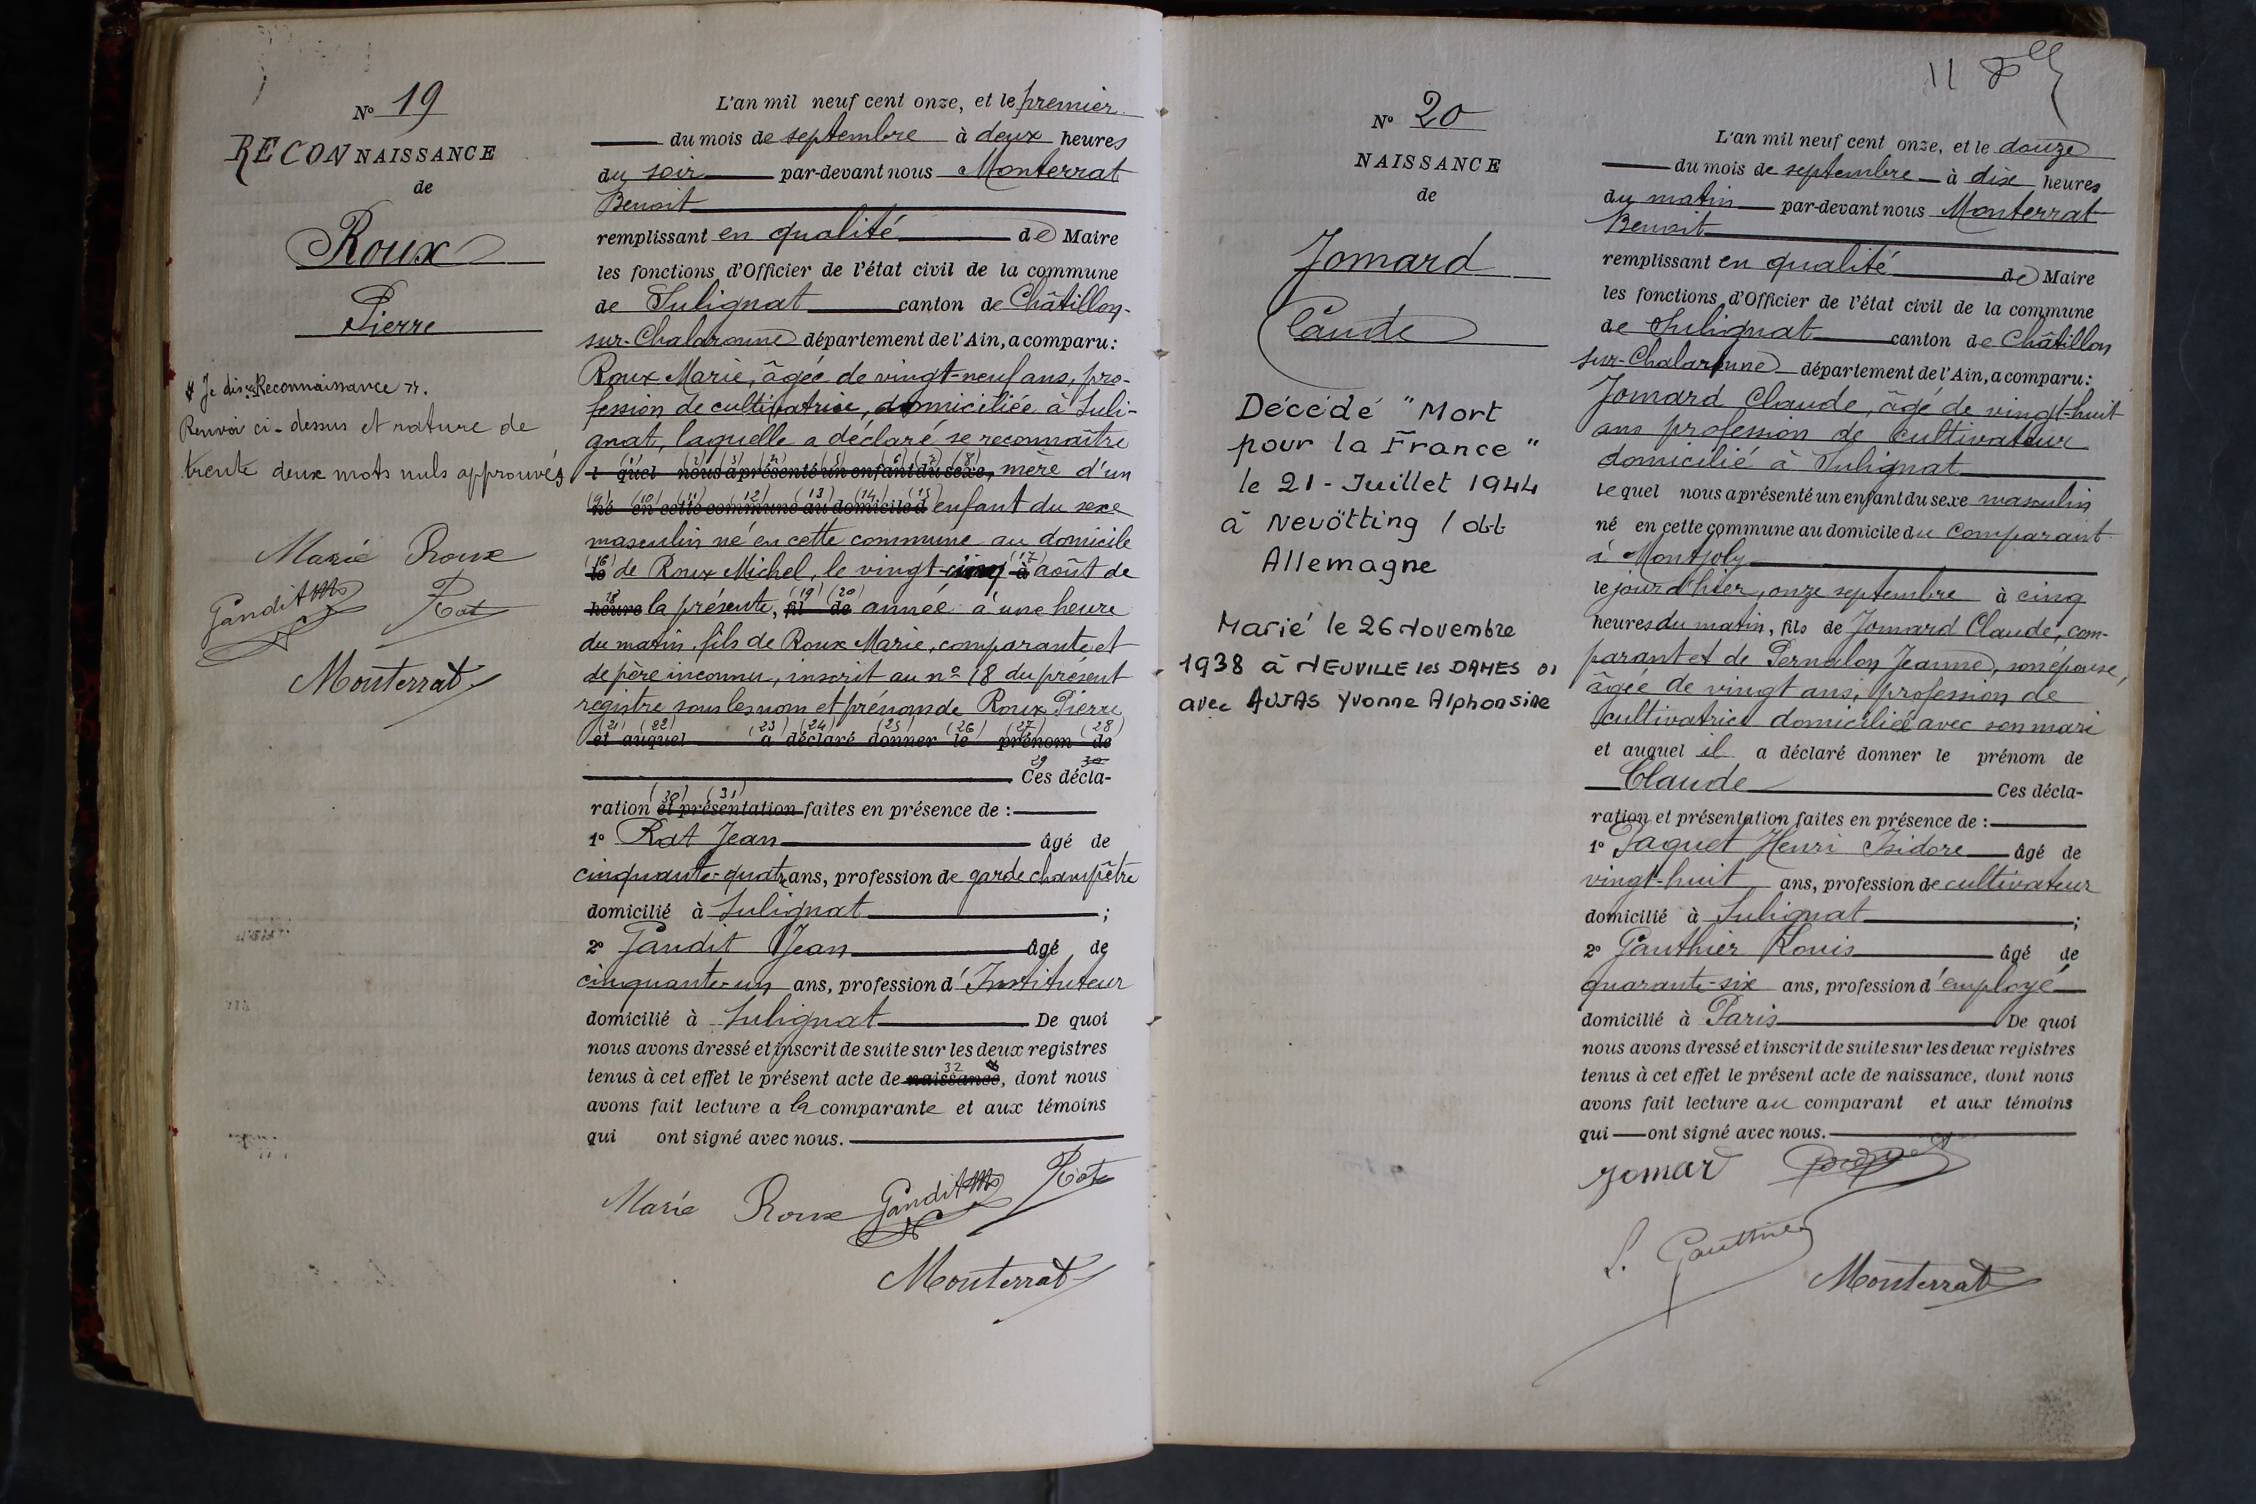 N° 19
RECONNAISSANCE
de
Roux
Pierre
# Je dis : "Reconnaissance".
Renvoi ci-dessus et rature de
trente deux mots nuls approuvés
Marie Roux
Gandit Rat
Monterrat
L'an mil neuf cent onze, et le premier
du mois de septembre à deux heures
du soir par-devant nous Monterrat
Benoit
remplissant en qualité de Maire
les fonctions d'Officier de l'état civil de la commune
de Sulignat canton de Châtillon-
sur-Chalaronne département de l'Ain, a comparu :
Roux Marie, âgée de vingt-neuf ans, pro-
fession de cultivatrice, domiciliée à Suli-
gnat, laquelle a déclaré se reconnaître
(1) (2) (3) (4) (5) (6) (7) (8)
l quel nous a présenté un enfant du sexe, mère d'un
(9) (10) (11) (12) (13) (14) (15)
né en cette commune au domicile d enfant du sexe
masculin né en cette commune au domicile
(16) (17)
le de Roux Michel, le vingt-cinq à août de
18 (19) (20)
heure la présente, fil de année à une heure
du matin, fils de Roux Marie, comparante et
de père inconnu, inscrit au n° 18 du présent
registre sous les nom et prénom de Roux Pierre
(21) (22) (23) (24) (25) (26) (27) (28)
et auquel a déclaré donner le prénom de
29 30
Ces décla-
(30) (31)
ration et présentation faites en présence de :
1° Rat Jean âgé de
cinquante-quatre ans, profession de garde champêtre
domicilié à Sulignat ;
2° Gandit Jean âgé de
cinquante-un ans, profession d'Instituteur
domicilié à Sulignat De quoi
nous avons dressé et inscrit de suite sur les deux registres
32 #
tenus à cet effet le présent acte de naissance, dont nous
avons fait lecture a la comparante et aux témoins
qui ont signé avec nous.
Marie Roux Gandit Rat
Monterrat
11
N° 20
NAISSANCE
de
Jomard
Claude
Décédé "Mort
pour la France"
le 21-Juillet 1944
à Nevötting / obt
Allemagne
Marié le 26 Novembre
1938 à NEUVILLE les DAMES 01
avec AUJAS Yvonne Alphonsine
L'an mil neuf cent onze, et le douze
du mois de septembre à dix heures
du matin par-devant nous Monterrat
Benoit
remplissant en qualité de Maire
les fonctions d'Officier de l'état civil de la commune
de Sulignat canton de Châtillon
sur-Chalaronne département de l'Ain, a comparu :
Jomard Claude, âgé de vingt-huit
ans profession de cultivateur
domicilié à Sulignat
lequel nous a présenté un enfant du sexe masculin
né en cette commune au domicile du comparant
à Montjoly
le jour d'hier, onze septembre à cinq
heures du matin, fils de Jomard Claude, com-
parant et de Pernalon Jeanne, son épouse,
âgée de vingt ans, profession de
cultivatrice domiciliée avec son mari
et auquel il a déclaré donner le prénom de
Claude Ces décla-
ration et présentation faites en présence de :
1° Paquet Henri Isidore âgé de
vingt-huit ans, profession de cultivateur
domicilié à Sulignat ;
2° Gauthier Louis âgé de
quarante-six ans, profession d'employé
domicilié à Paris De quoi
nous avons dressé et inscrit de suite sur les deux registres
tenus à cet effet le présent acte de naissance, dont nous
avons fait lecture au comparant et aux témoins
qui ont signé avec nous.
Jomard
L. Gauthier
Monterrat